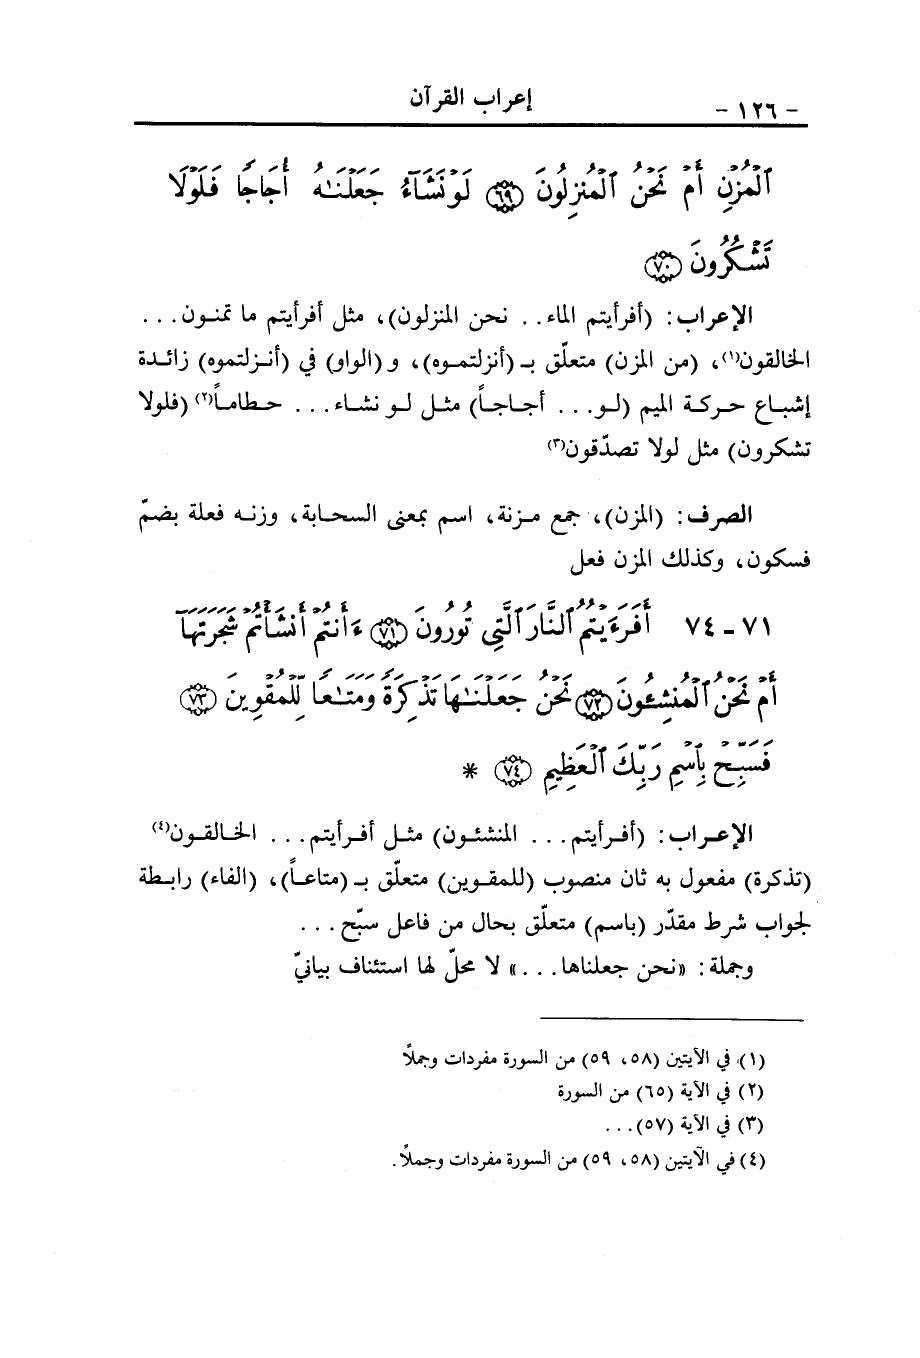 - ١٢٦ - إعراب القرآن
ٱلْمُزْنِ أَمْ نَحْنُ ٱلْمُنزِلُونَ ﴿٦٩﴾ لَوْ نَشَآءُ جَعَلْنَٰهُ أُجَاجًا فَلَوْلَا
تَشْكُرُونَ ﴿٧٠﴾
الإعراب: (أفرأيتم الماء.. نحن المنزلون)، مثل أفرأيتم ما تمنون...
الخالقون(١)، (من المزن) متعلّق بـ (أنزلتموه)، و(الواو) في (أنزلتموه) زائدة
إشباع حركة الميم (لو... أجاجاً) مثل لو نشاء... حطاماً(٢) (فلولا
تشكرون) مثل لولا تصدّقون(٣)
الصرف: (المزن)، جمع مزنة، اسم بمعنى السحابة، وزنه فعلة بضمّ
فسكون، وكذلك المزن فعل
٧١ - ٧٤ أَفَرَءَيْتُمُ ٱلنَّارَ ٱلَّتِى تُورُونَ ﴿٧١﴾ ءَأَنتُمْ أَنشَأْتُمْ شَجَرَتَهَآ
أَمْ نَحْنُ ٱلْمُنشِـُٔونَ ﴿٧٢﴾ نَحْنُ جَعَلْنَٰهَا تَذْكِرَةً وَمَتَٰعًا لِّلْمُقْوِينَ ﴿٧٣﴾
فَسَبِّحْ بِٱسْمِ رَبِّكَ ٱلْعَظِيمِ ﴿٧٤﴾ *
الإعراب: (أفرأيتم... المنشئون) مثل أفرأيتم... الخالقون(٤)
(تذكرة) مفعول به ثان منصوب (للمقوين) متعلّق بـ (متاعاً)، (الفاء) رابطة
لجواب شرط مقدّر (باسم) متعلّق بحال من فاعل سبّح...
وجملة: «نحن جعلناها...» لا محلّ لها استئناف بيانيّ
(١) في الآيتين (٥٨، ٥٩) من السورة مفردات وجملًا
(٢) في الآية (٦٥) من السورة
(٣) في الآية (٥٧)...
(٤) في الآيتين (٥٨، ٥٩) من السورة مفردات وجملًا.